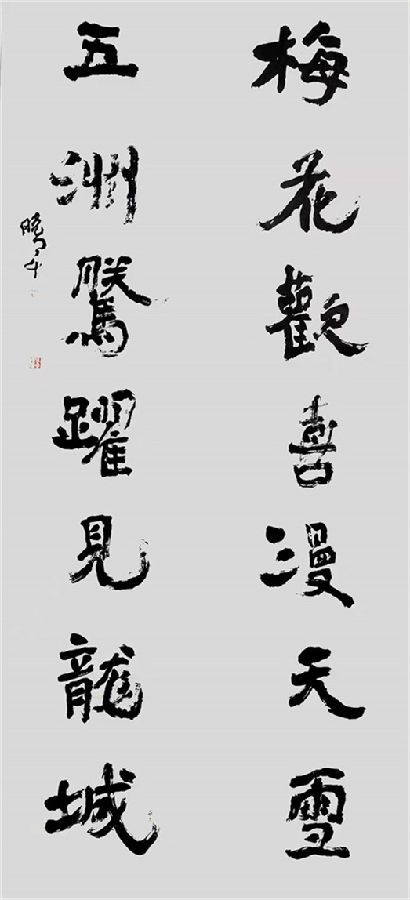 梅花觀喜漫天雪
五洲騰躍見龍城